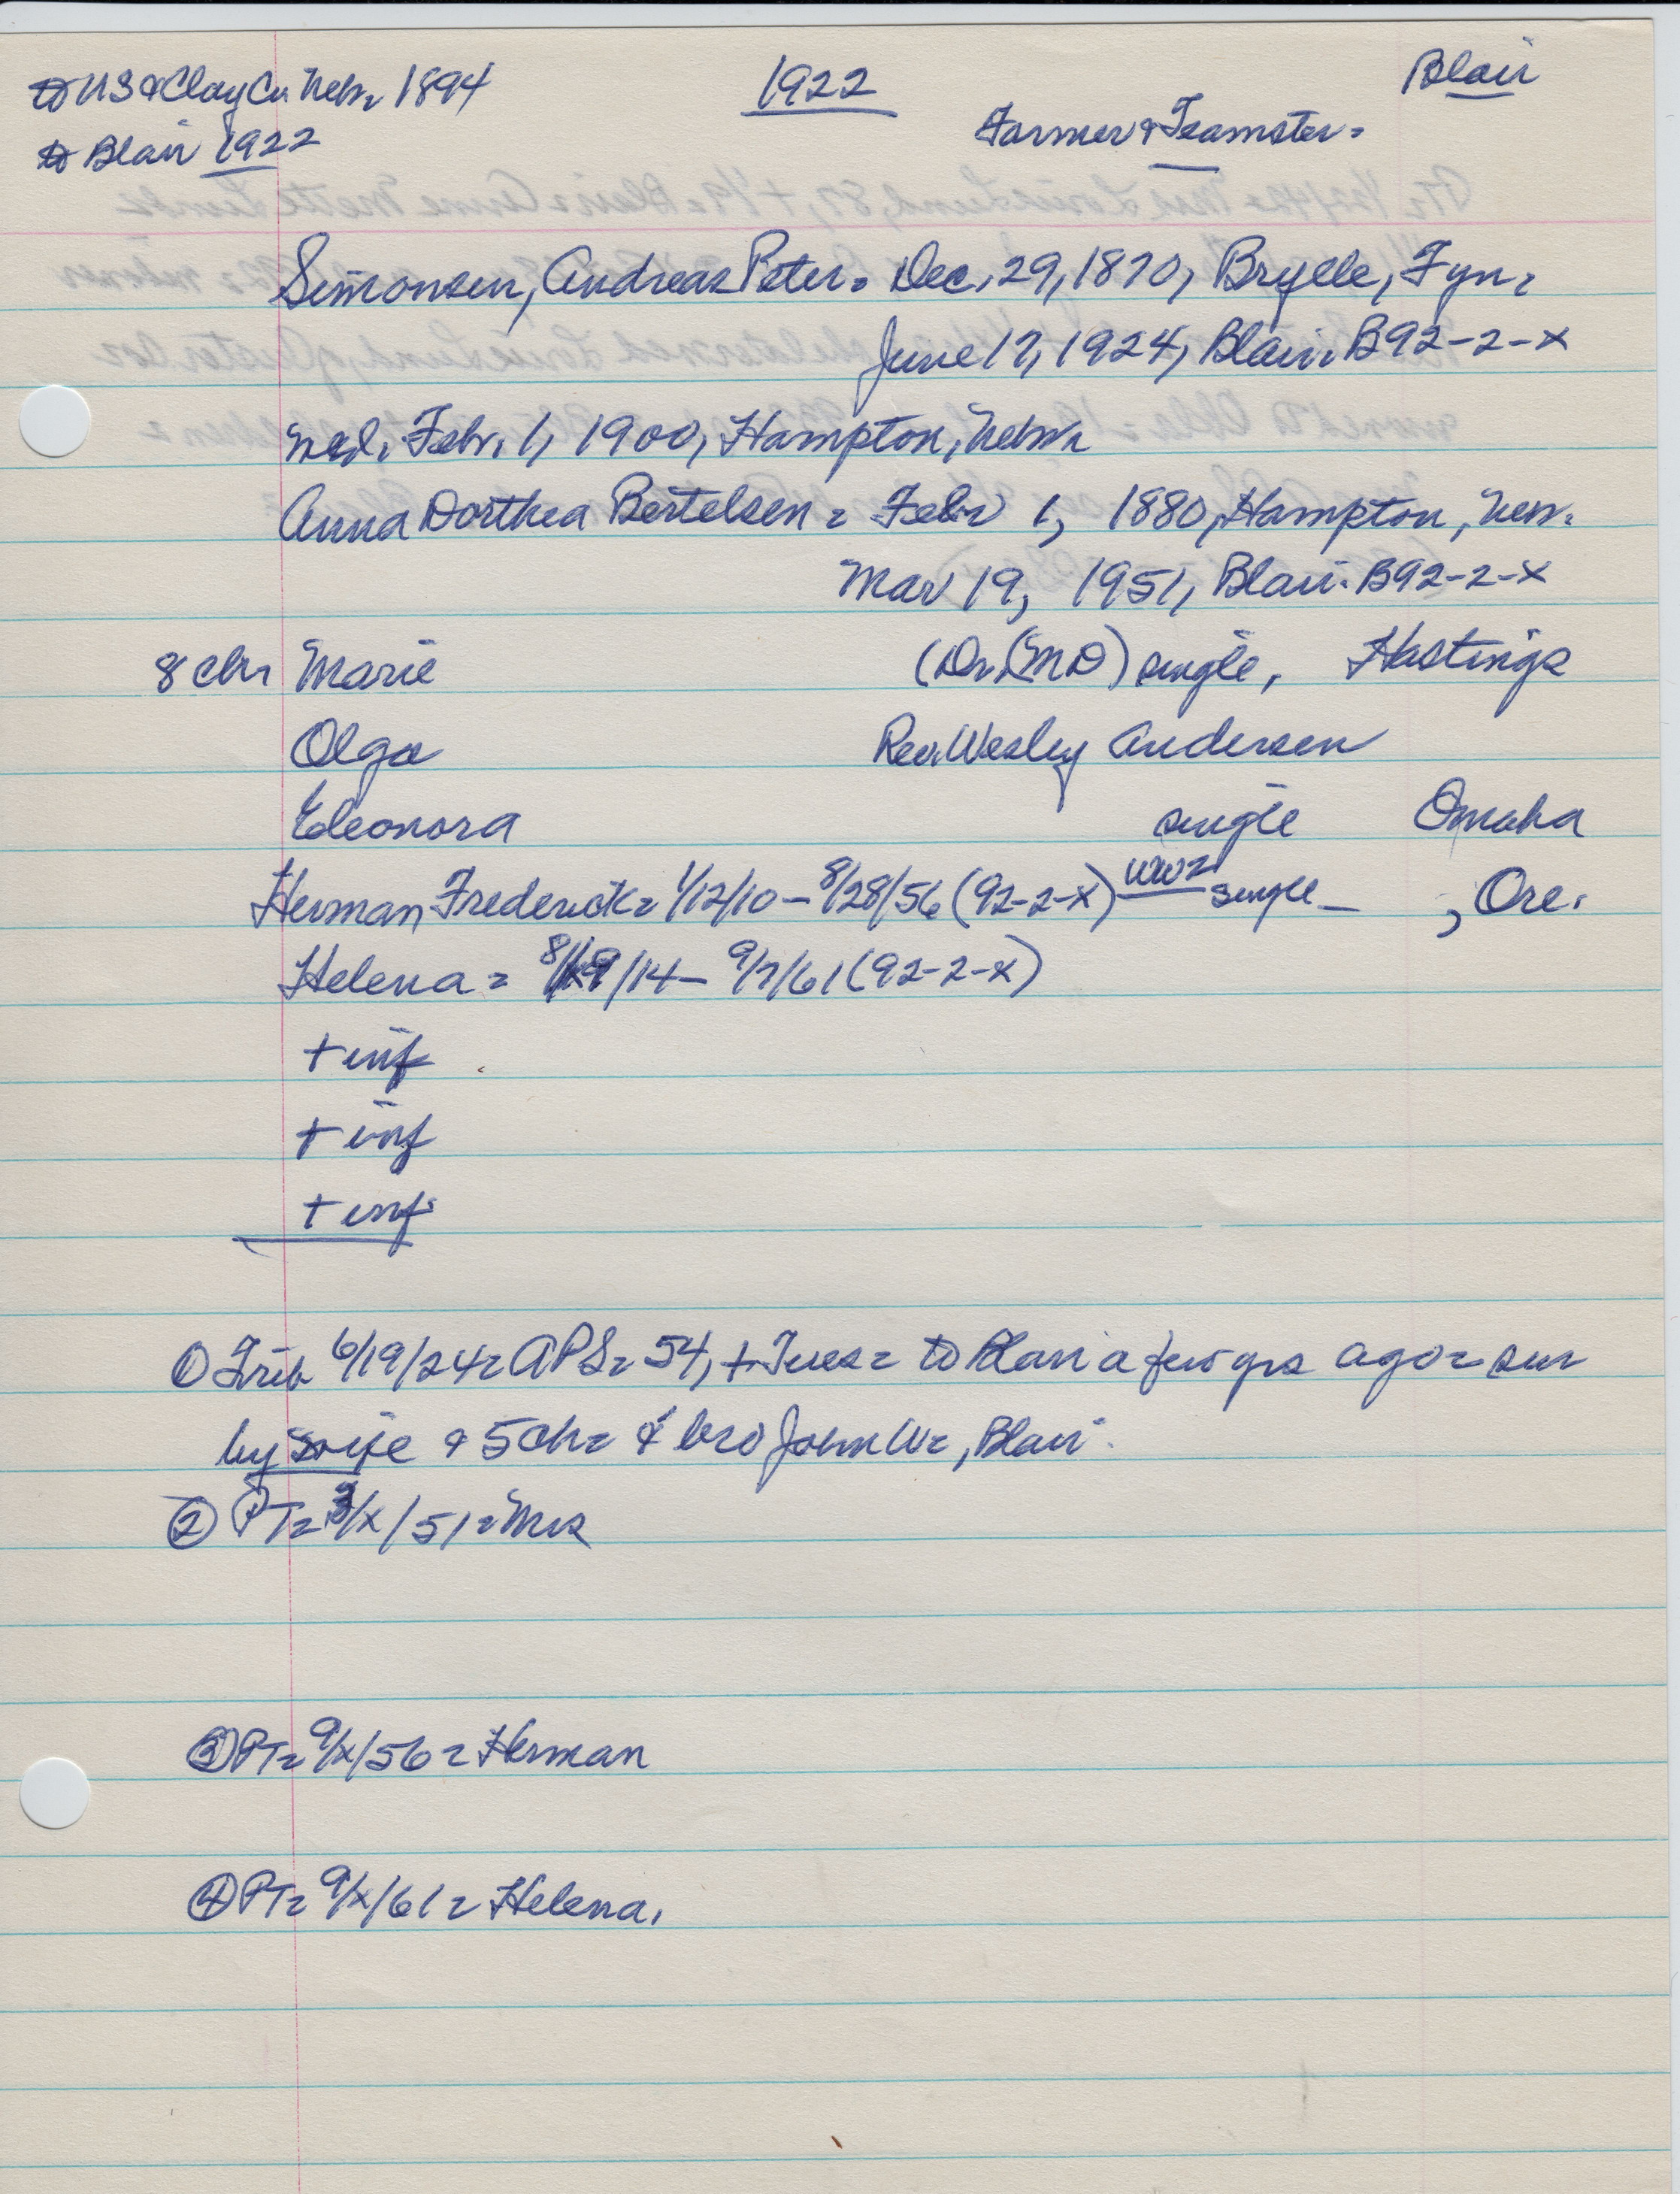 to US & Clay Co. Nebr 1894
1922
Blair
to Blair 1922
Farmer & Teamster =
Simonsen, Andreas Peter = Dec. 29, 1870, Brylle, Fyn =
June 17, 1924, Blair. B92-2-x
md. Febr. 1, 1900, Hampton, Nebr
Anna Dorthea Bertelsen = Febr 1, 1880, Hampton, Nebr.
Mar 19, 1951, Blair. B92-2-x
8 chr Marie (Dr. (MD) single, Hastings
Olga Rev. Wesley Andersen
Eleonora single Omaha
Herman Frederick = 1/12/10 - 8/28/56 (92-2-x) WW2 single - , Ore.
Helena = 8/19/14 - 9/7/61 (92-2-x)
+ inf
+ inf
+ inf
① Trib 6/19/24 = APS = 54, + Tues = to Blair a few yrs ago = sur
by wife & 5 ch = & bro John W =, Blair.
② PT = 3/x/51 = Mrs
③ PT = 9/x/56 = Herman
④ PT = 9/x/61 = Helena.